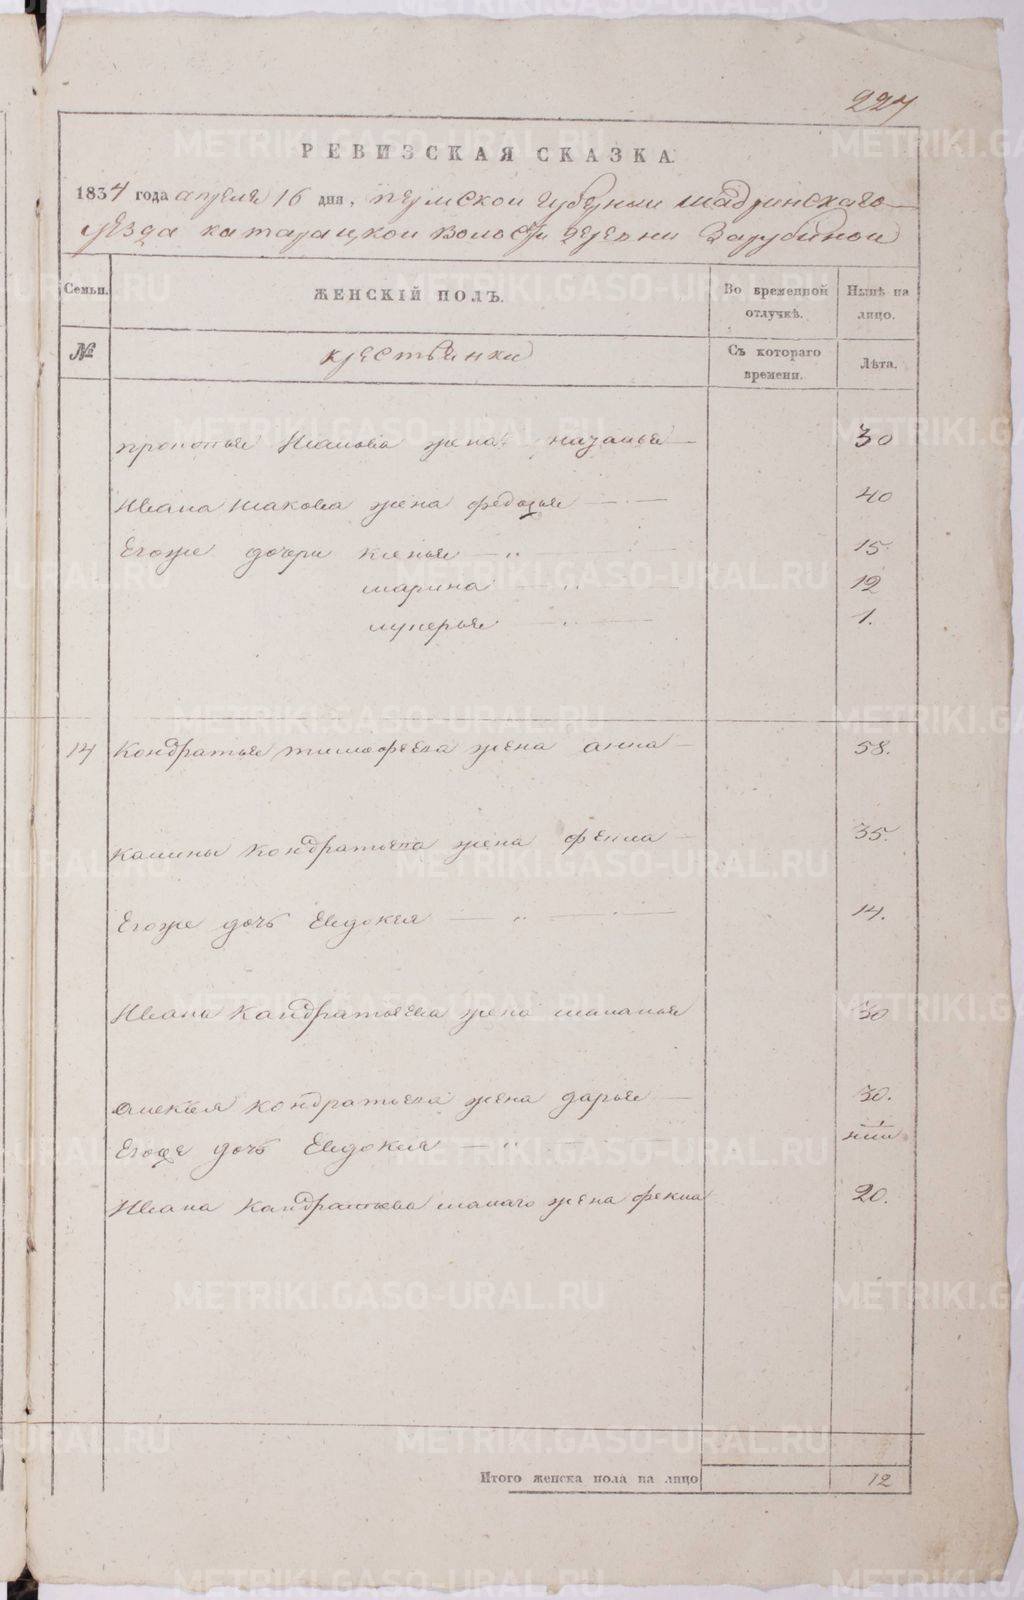 227
РЕВИЗСКАЯ СКАЗКА
1834 года апреля 16 дня, пермской губернии шадринскаго
уезда катарацкой волости деревни Зарубиной
Семьи. ЖЕНСКІЙ ПОЛЪ. Во временной отлучкѣ. Нынѣ на лицо.
№ крестьянки Съ котораго времени. Лѣта.
прокопья Исакова жена 30
Ивана исакова жена федосья 40
Егоже дочери ксенья 15
марина 12
лукерья 1.
14 Кондратья тимофеева жена анна 58.
калины Кондратьева жена фекла 35.
Егоже дочь Евдокея 14.
Ивана Кандратьева жена маланья 30
алексея кондратьева жена дарья 30.
Егоже дочь Евдокия
Ивана Кандратьева малаго жена фекла 20.
Итого женска пола на лицо 12
METRIKI.GASO-URAL.RU